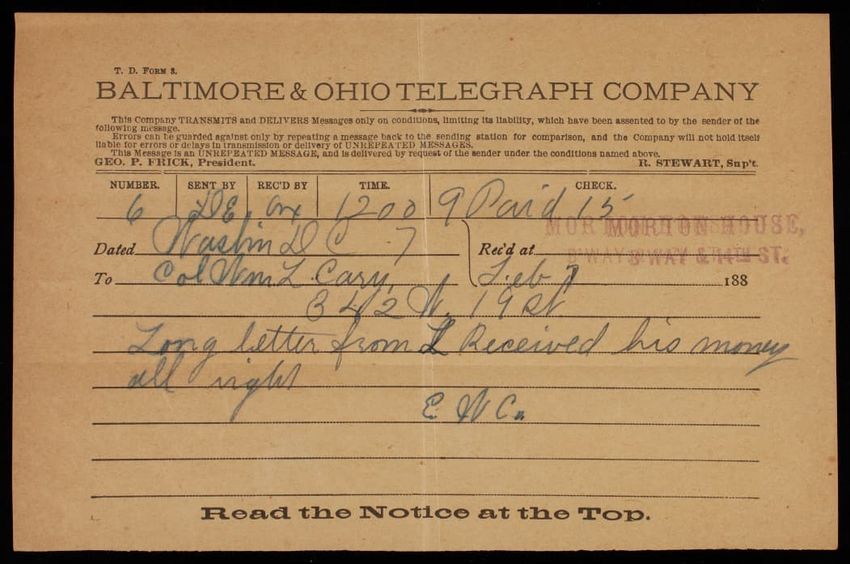 T. D. FORM 3.
BALTIMORE & OHIO TELEGRAPH COMPANY
This Company TRANSMITS and DELIVERS Messages only on conditions, limiting its liability, which have been assented to by the sender of the
following message.
Errors can be guarded against only by repeating a message back to the sending station for comparison, and the Company will not hold itself
liable for errors or delays in transmission or delivery of UNREPEATED MESSAGES.
This Message is an UNREPEATED MESSAGE, and is delivered by request of the sender under the conditions named above.
GEO. P. FRICK, President. R. STEWART, Sup't.
NUMBER. SENT BY REC'D BY TIME. CHECK.
6 DE 1200 9 Paid 15
MORTON HOUSE,
Dated Washn D C 7 Rec'd at B'WAY & 14TH ST.
To Col Wm L Cary, Feb 7 188
342 W. 19 St
Long letter from L Received his money
all right
E W C.
Read the Notice at the Top.